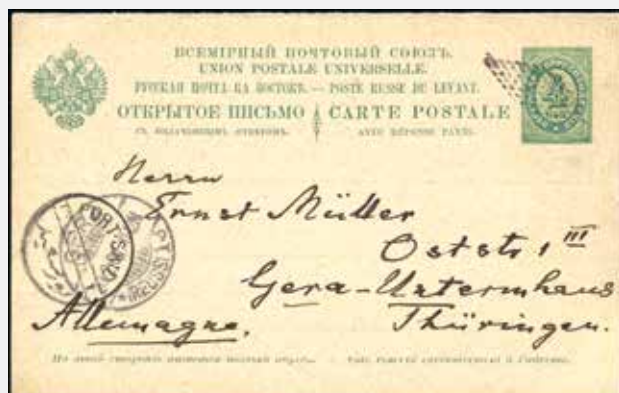 ВСЕМІРНЫЙ ПОЧТОВЫЙ СОЮЗЪ.
UNION POSTALE UNIVERSELLE.
РУССКАЯ ПОЧТА НА ВОСТОКѢ. — POSTE RUSSE DU LEVANT.
ОТКРЫТОЕ ПИСЬМО CARTE POSTALE
СЪ ОПЛАЧЕННЫМЪ ОТВѢТОМЪ. AVEC RÉPONSE PAYÉE.
Herrn
Ernst Müller
Oststr. 1 III
Gera-Untermhaus
Allemagne. Thüringen.
PORT-SAID